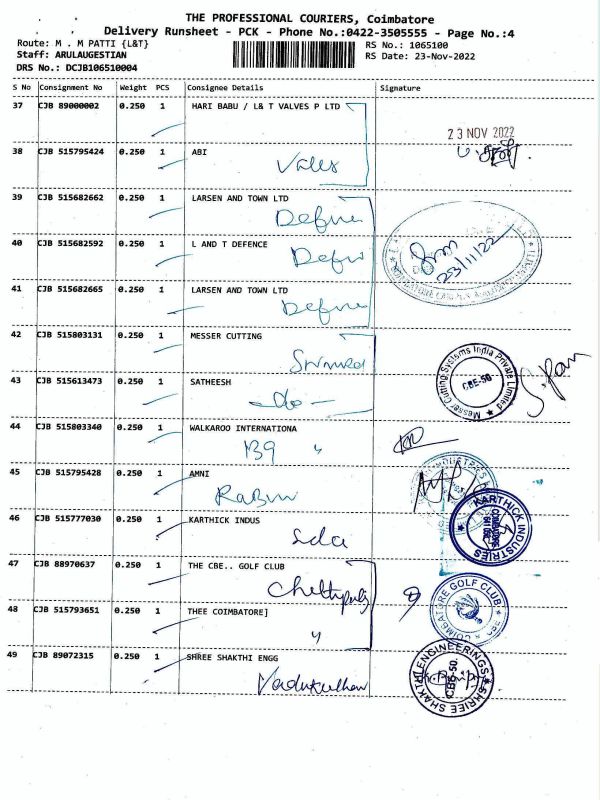 THE PROFESSIONAL COURIERS, Coimbatore
Delivery Runsheet - PCK - Phone No.:0422-3505555 - Page No.:4
Route: M . M PATTI {L&T}
RS No.: 1065100
Staff: ARULAUGESTIAN
RS Date: 23-Nov-2022
DRS No.: DCJB106510004
S No Consignment No Weight PCS Consignee Details Signature
37 CJB 89000002 0.250 1 HARI BABU / L& T VALVES P LTD
23 NOV 2022
38 CJB 515795424 0.250 1 ABI
Valves
39 CJB 515682662 0.250 1 LARSEN AND TOWN LTD
40 CJB 515682592 0.250 1 L AND T DEFENCE
23/11/22
41 CJB 515682665 0.250 1 LARSEN AND TOWN LTD
42 CJB 515803131 0.250 1 MESSER CUTTING
Messer Cutting Systems India Private Limited
CBE-50.
43 CJB 515613473 0.250 1 SATHEESH
- do -
44 CJB 515803340 0.250 1 WALKAROO INTERNATIONA
139 "
45 CJB 515795428 0.250 1 AMNI
46 CJB 515777030 0.250 1 KARTHICK INDUS
KARTHICK INDUSTRIES
47 CJB 88970637 0.250 1 THE CBE.. GOLF CLUB
48 CJB 515793651 0.250 1 THEE COIMBATORE]
"
COIMBATORE GOLF CLUB
49 CJB 89072315 0.250 1 SHREE SHAKTHI ENGG
SHRIEE SHAKTHI ENGINEERINGS
CBE-50.